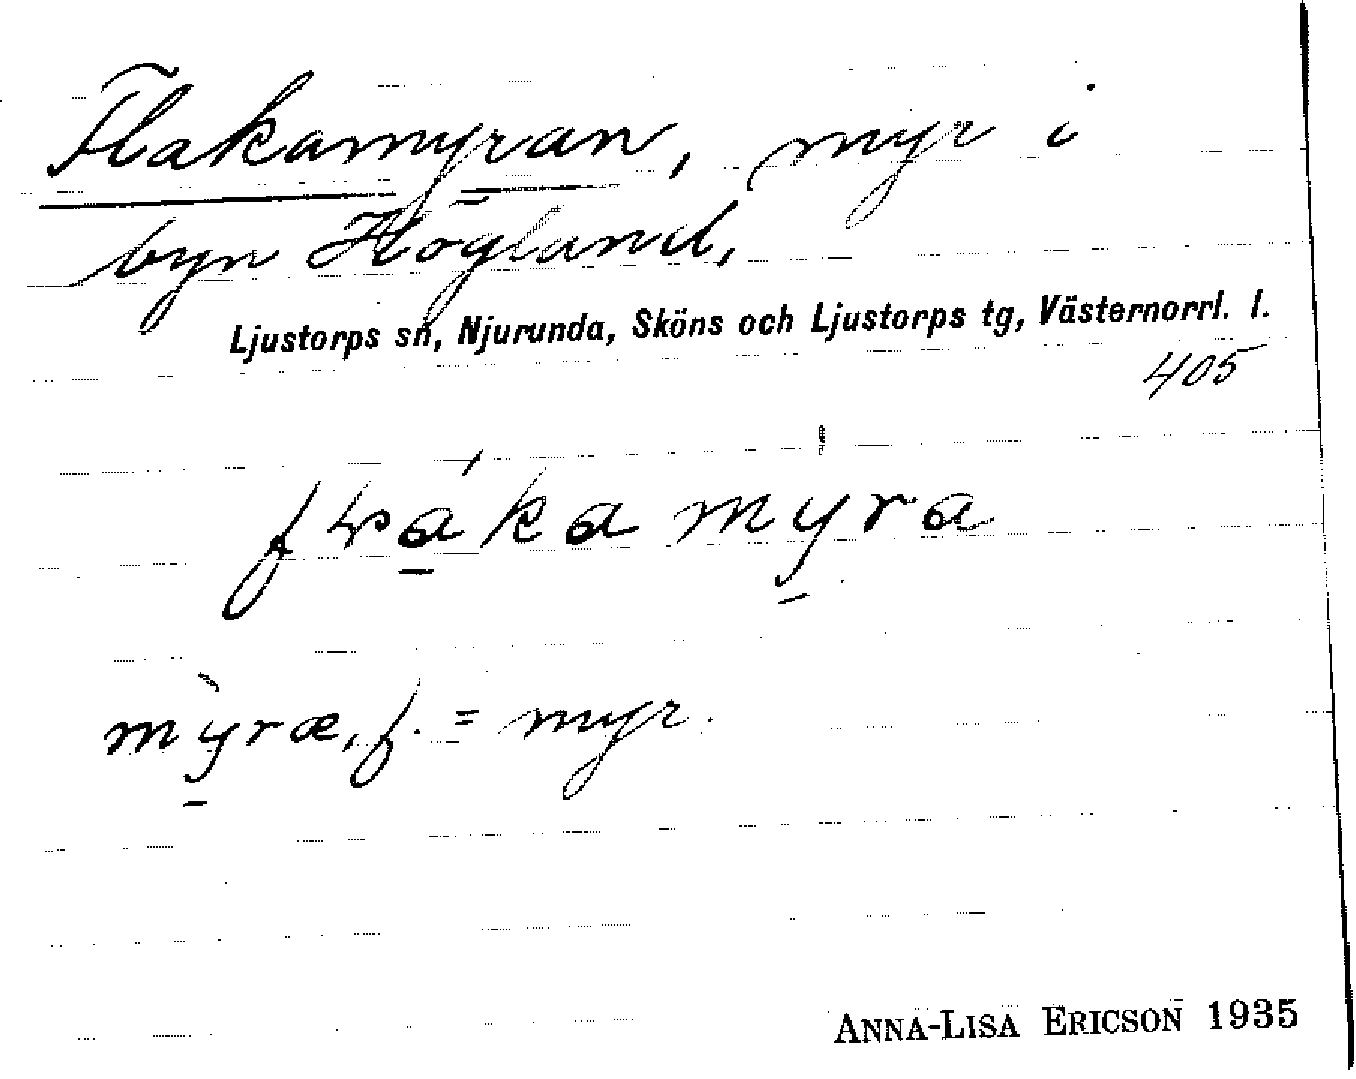 Flakamyran, myr i
byn Högland,
Ljustorps sn, Njurunda, Sköns och Ljustorps tg, Västernorrl. l.
405
mỳ̱ræ, f. = myr.
ANNA-LISA ERICSON 1935